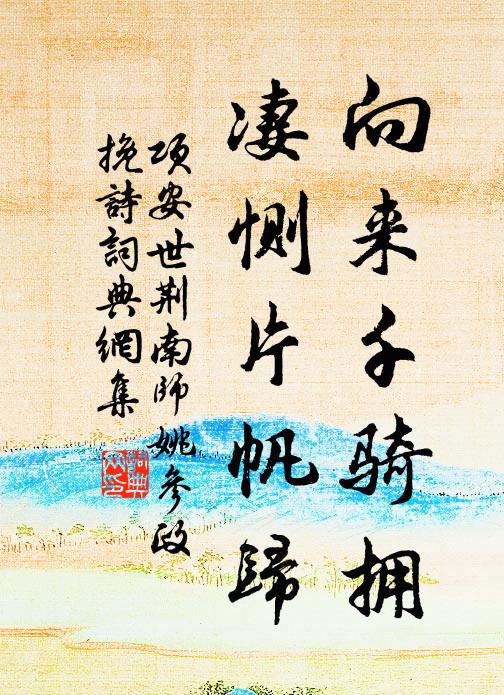 向来千骑拥
凄恻片帆歸
项安世荆南师姚參政
挽詩詞典網集